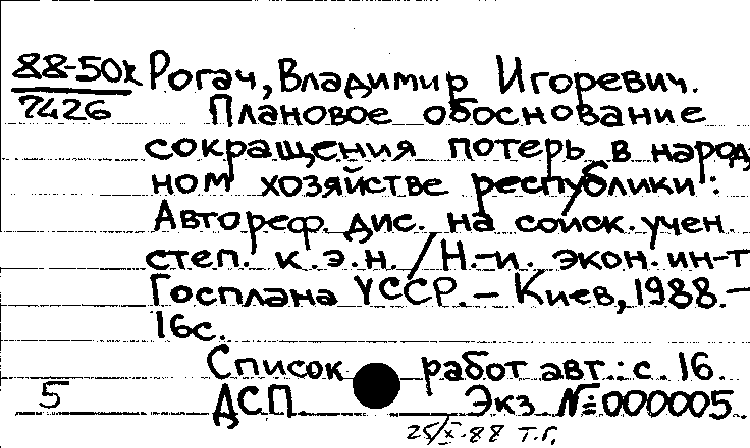 88-50к Рогач, Владимир Игоревич.
7426 Плановое обоснование
сокращения потерь в народ
ном хозяйстве республики:
Автореф. дис. на соиск. учен.
степ. к.э.н. / Н.-и. экон. ин-т
Госплана УССР. – Киев, 1988. –
16с.
Список работ авт.: с. 16.
5 ДСП. Экз. №000005.
25/X-88 т.г.